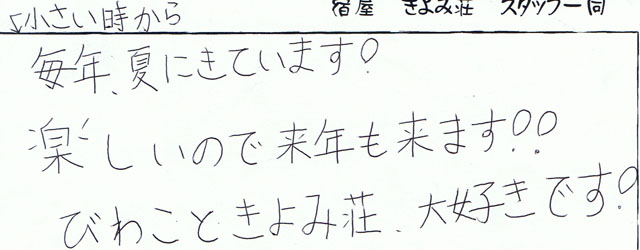 宿屋 きよみ荘 スタッフ一同
小さい時から
毎年、夏にきています!
楽しいので来年も来ます!!
びわこときよみ荘、大好きです!